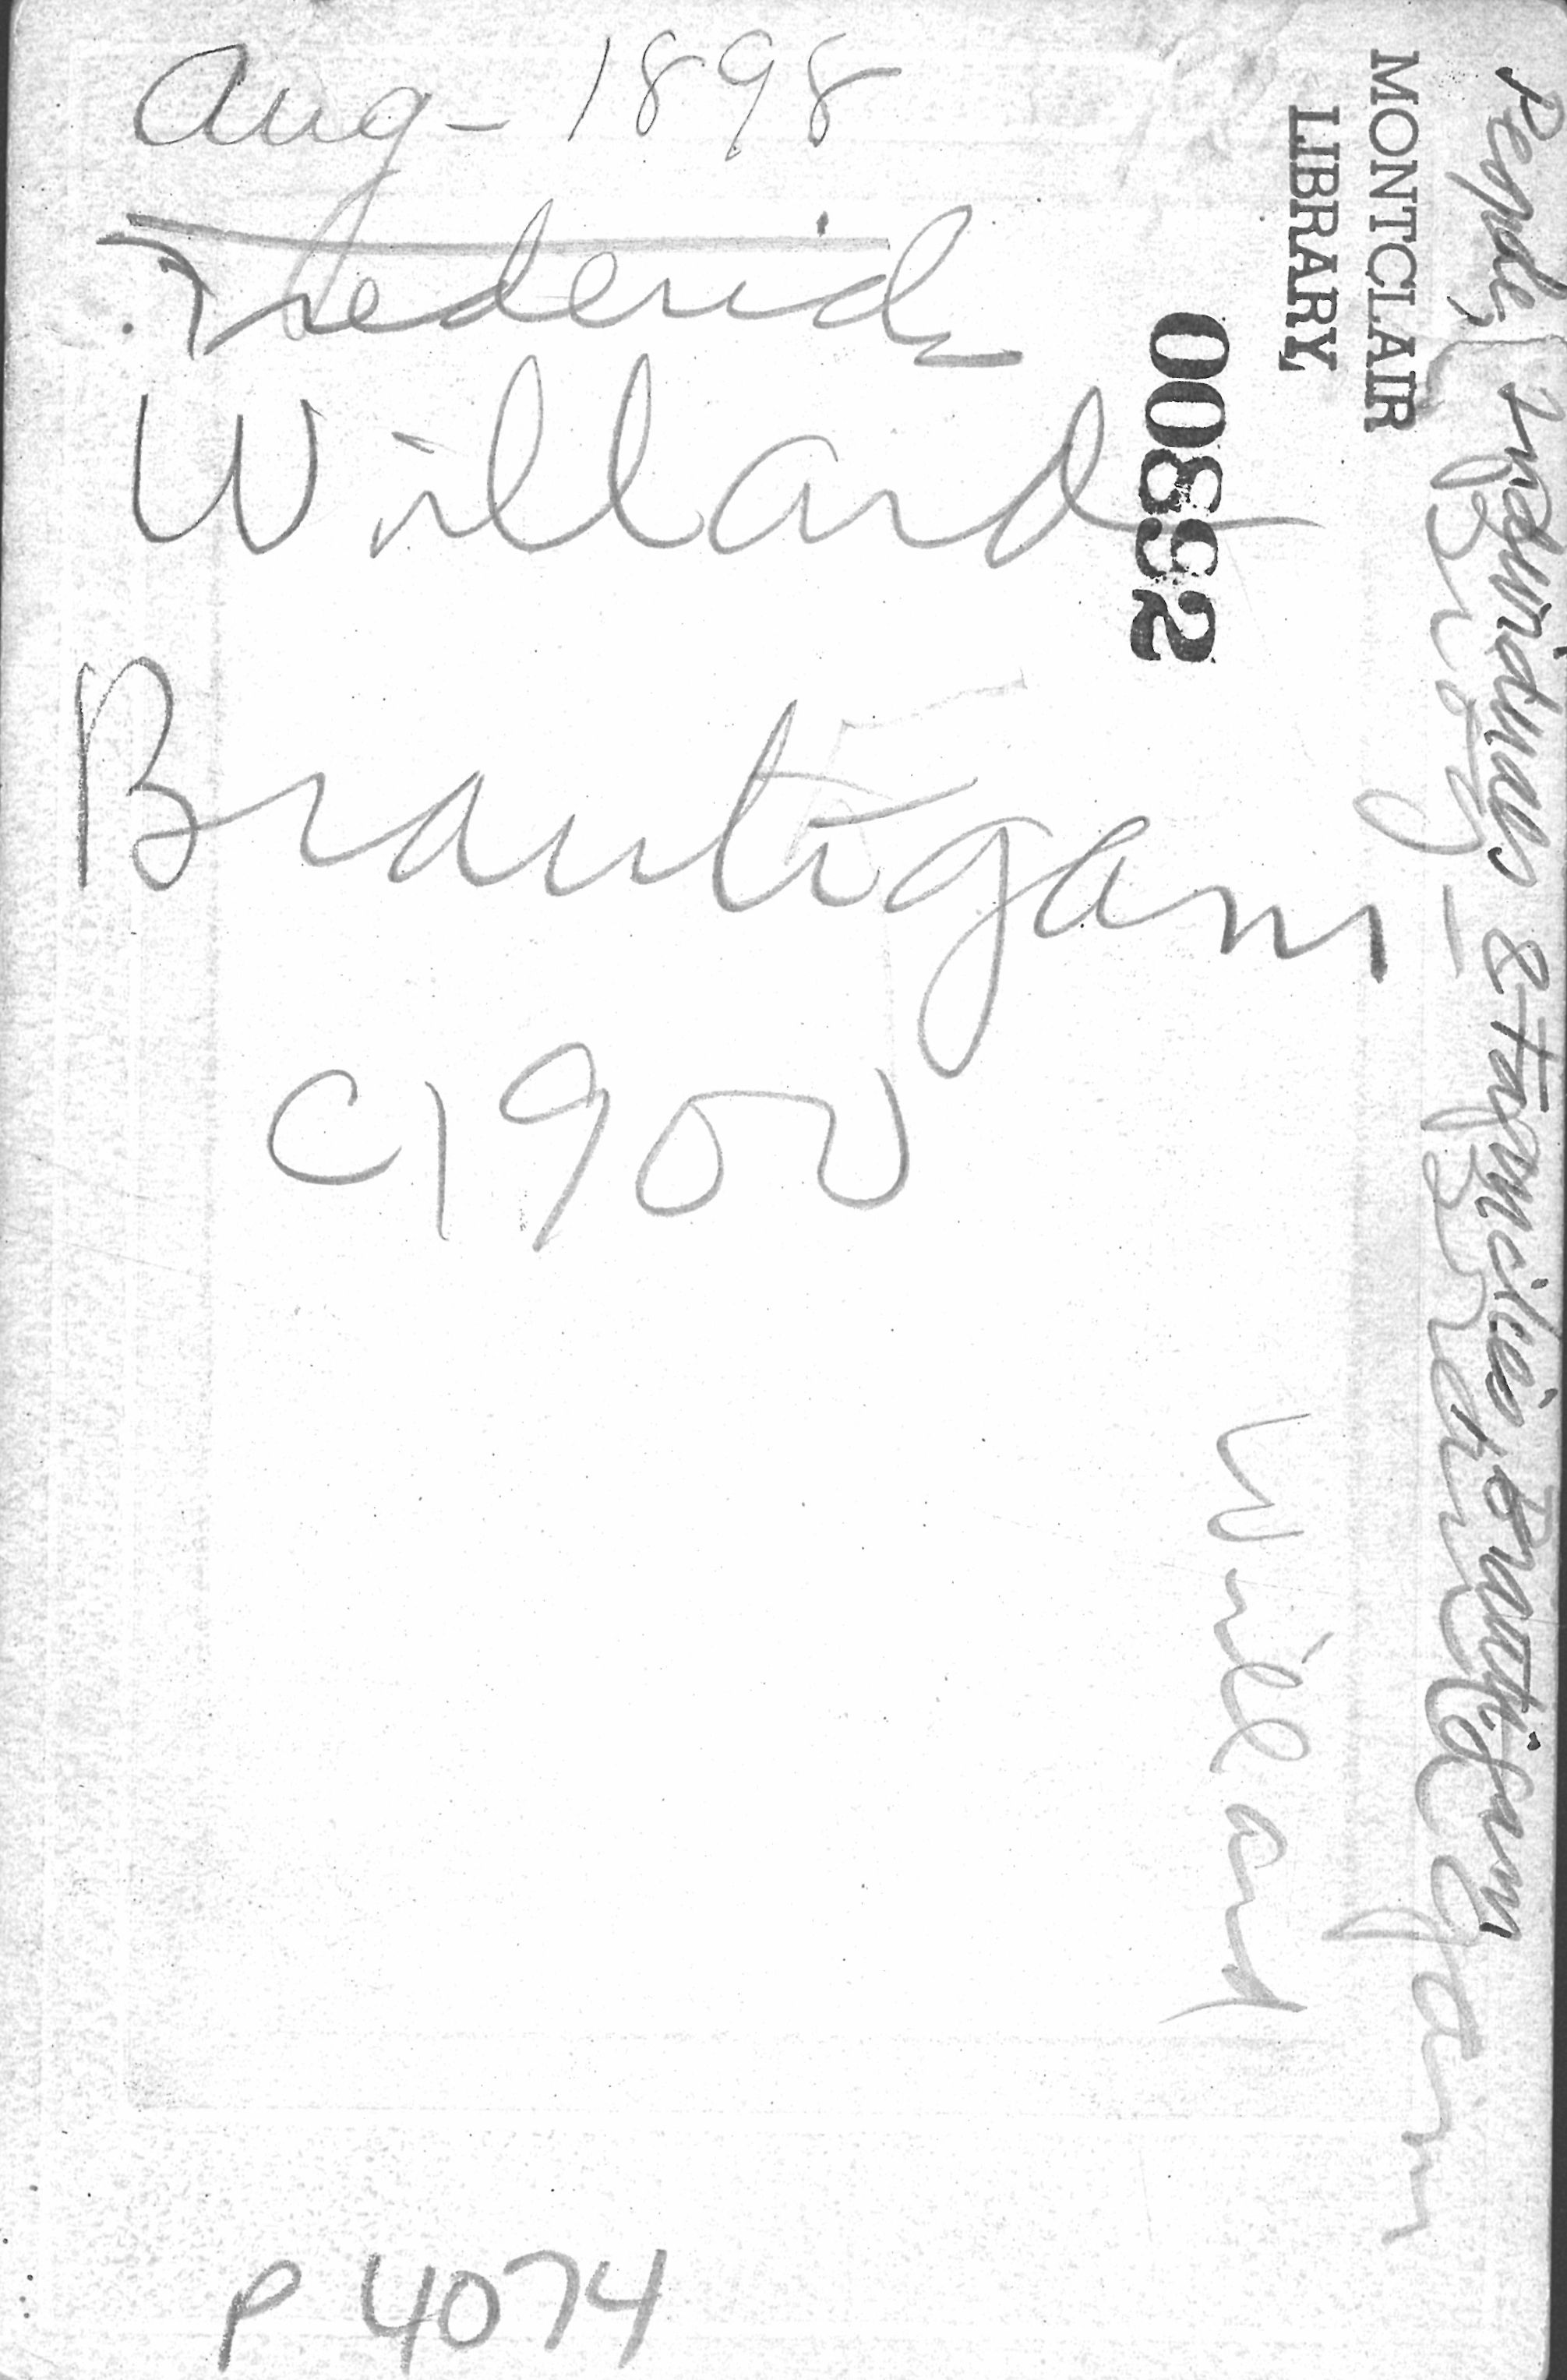 Aug - 1898
Frederick
Willard
Brautigam
C1900
P 4074
People, Individuals & Families, Brautigam
Biog - Brautigam
Willard
MONTCLAIR
LIBRARY
00892